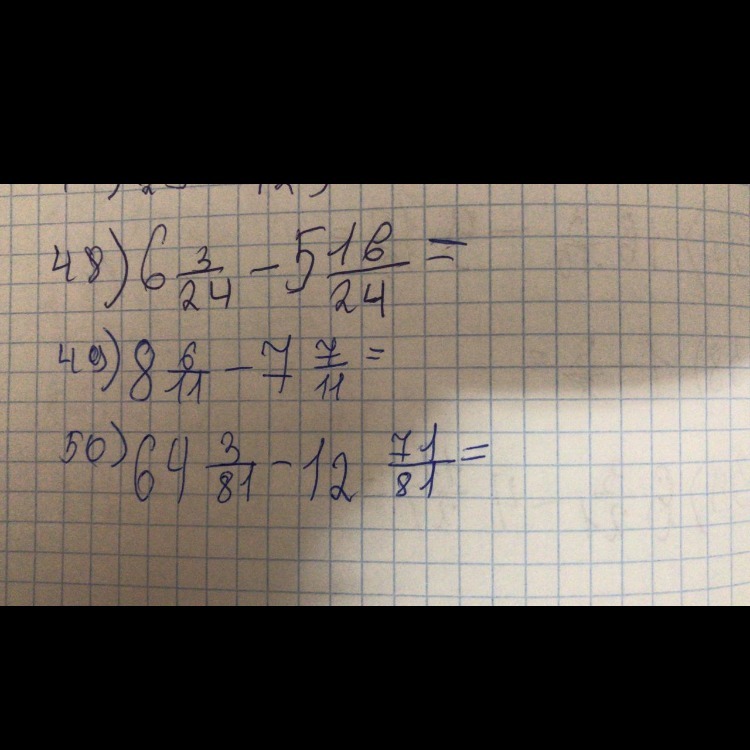 48) 6 3/24 - 5 16/24 =
49) 8 6/11 - 7 7/11 =
50) 64 3/81 - 12 71/81 =